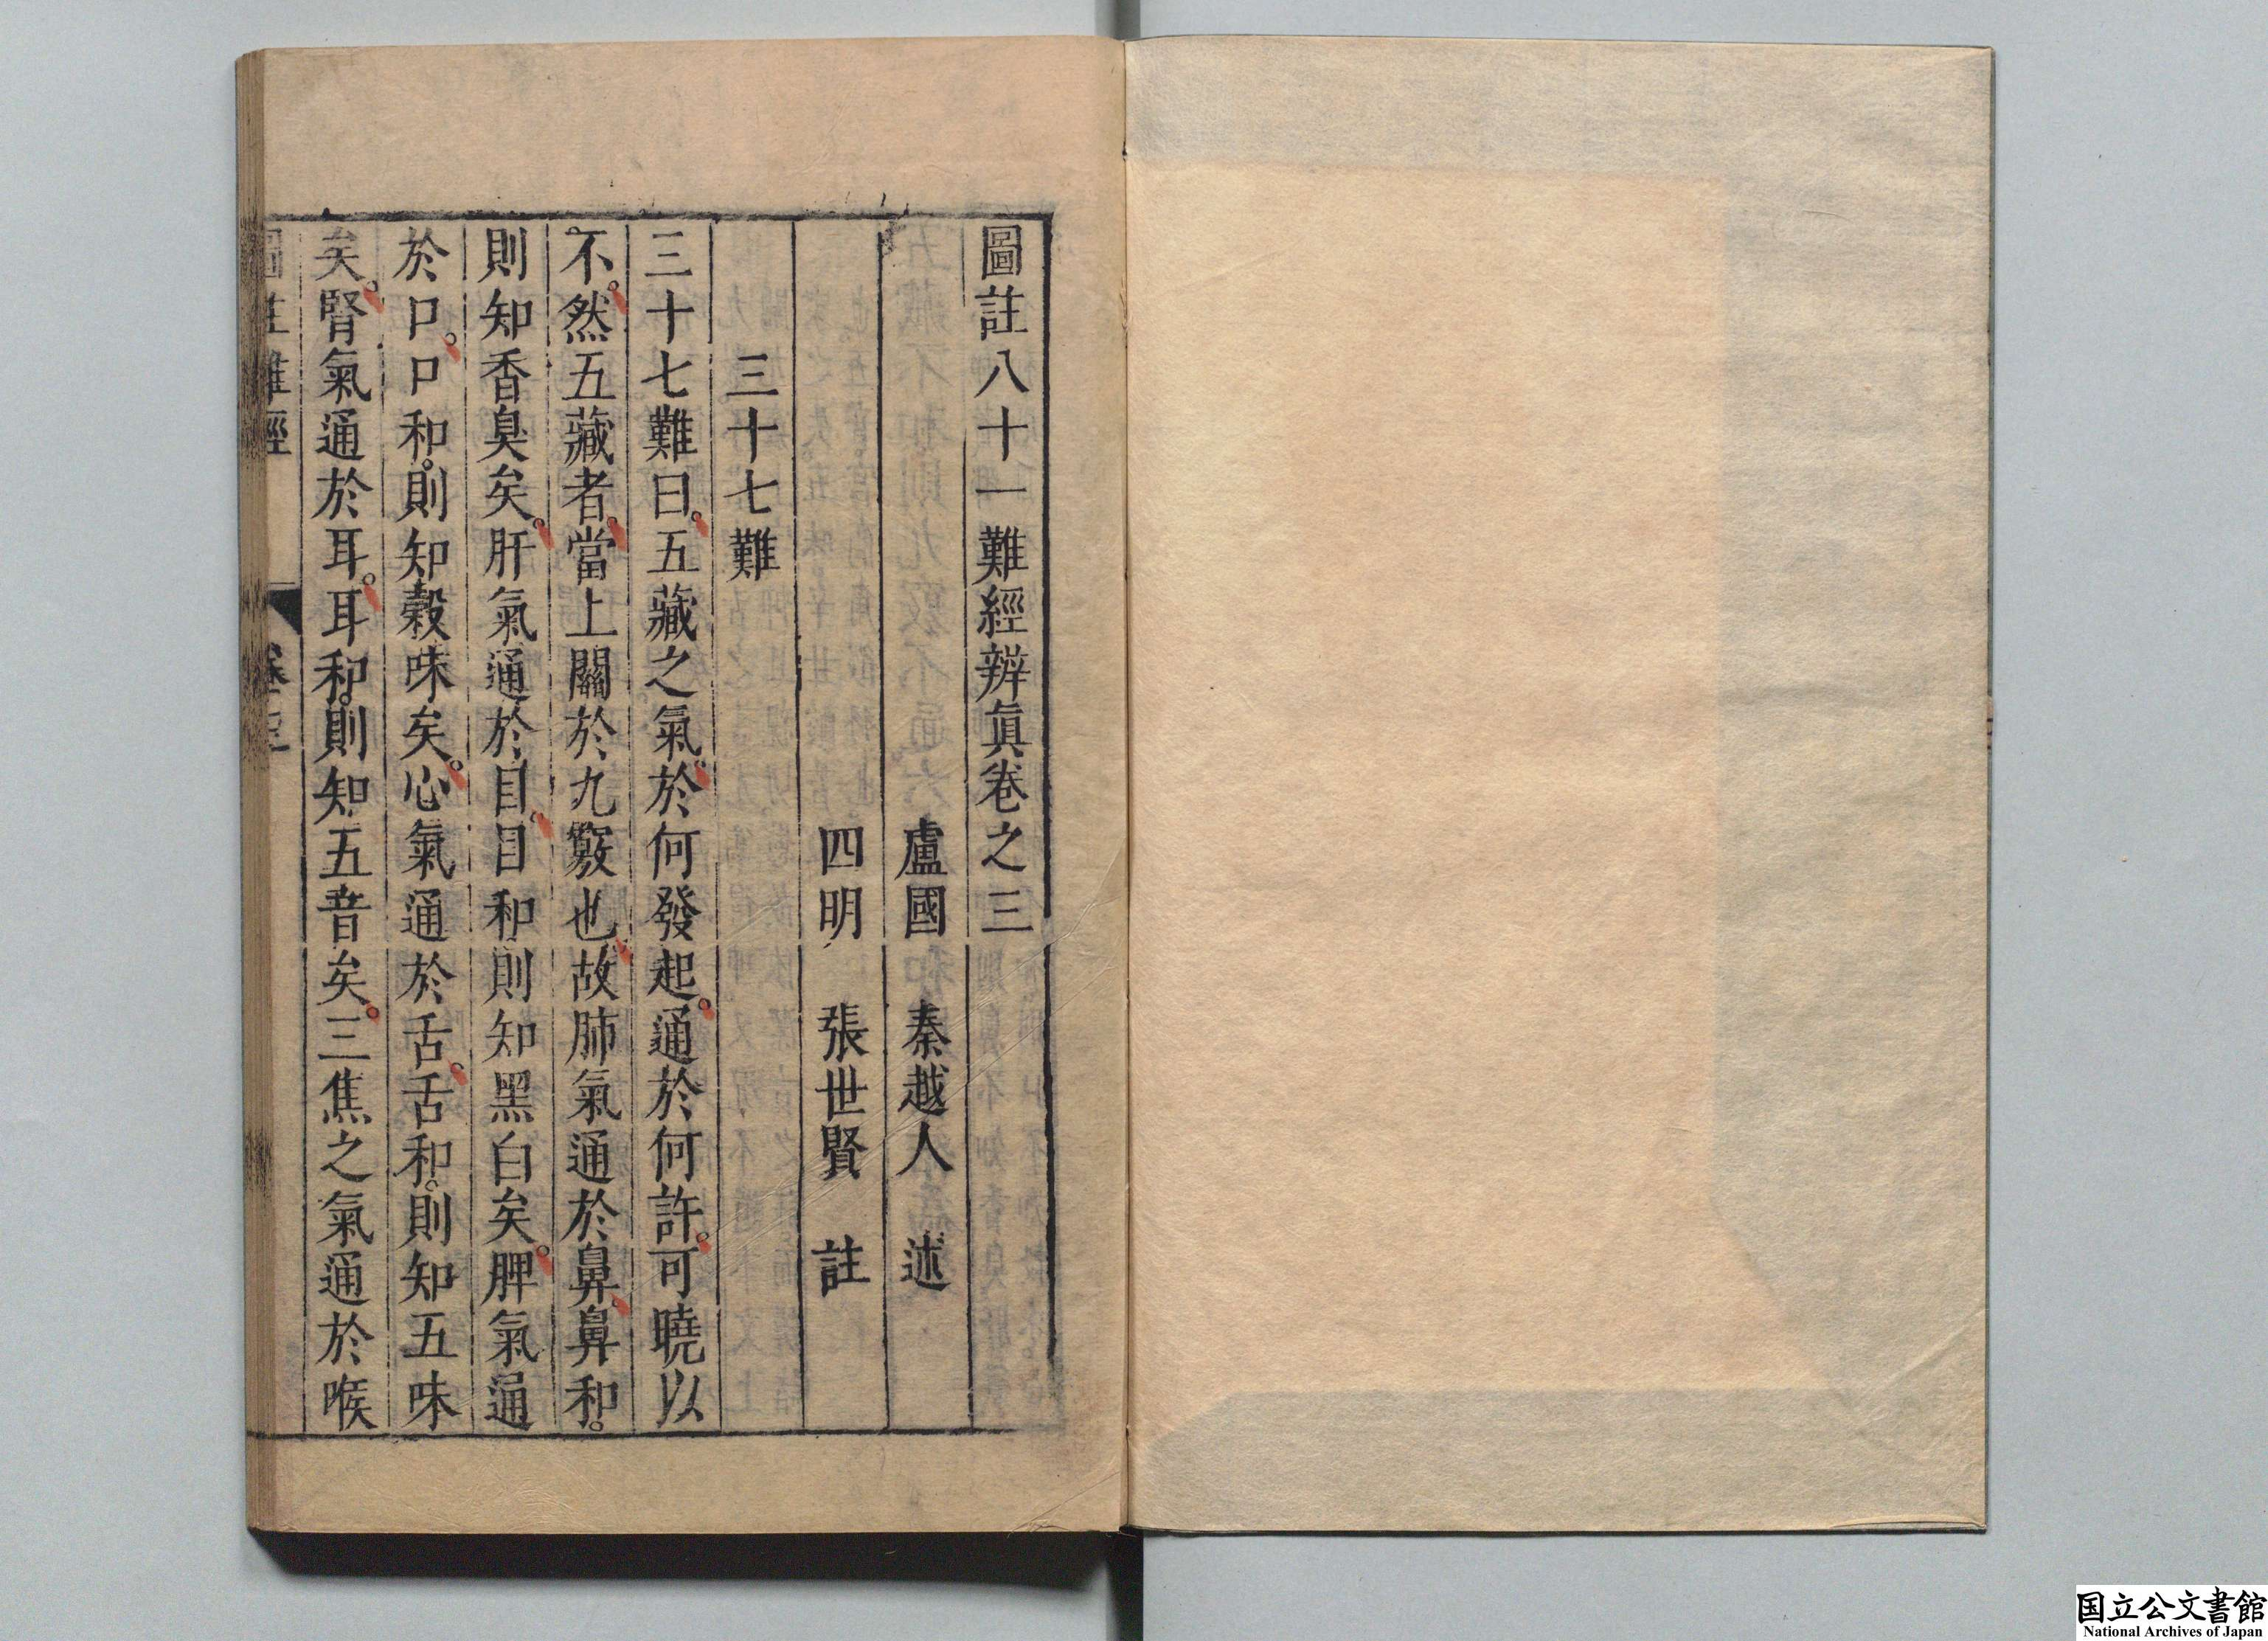 圖註八十一難經辨眞卷之三
盧國 秦越人 述
四明 張世賢 註
三十七難
三十七難曰。五藏之氣。於何發起。通於何許。可曉以
不。然五藏者。當上關於九竅也。故肺氣通於鼻。鼻和。
則知香臭矣。肝氣通於目。目和則知黑白矣。脾氣通
於口。口和。則知穀味矣。心氣通於舌。舌和。則知五味
矣。腎氣通於耳。耳和。則知五音矣。三焦之氣通於喉
圖註難經 卷三
国立公文書館
National Archives of Japan